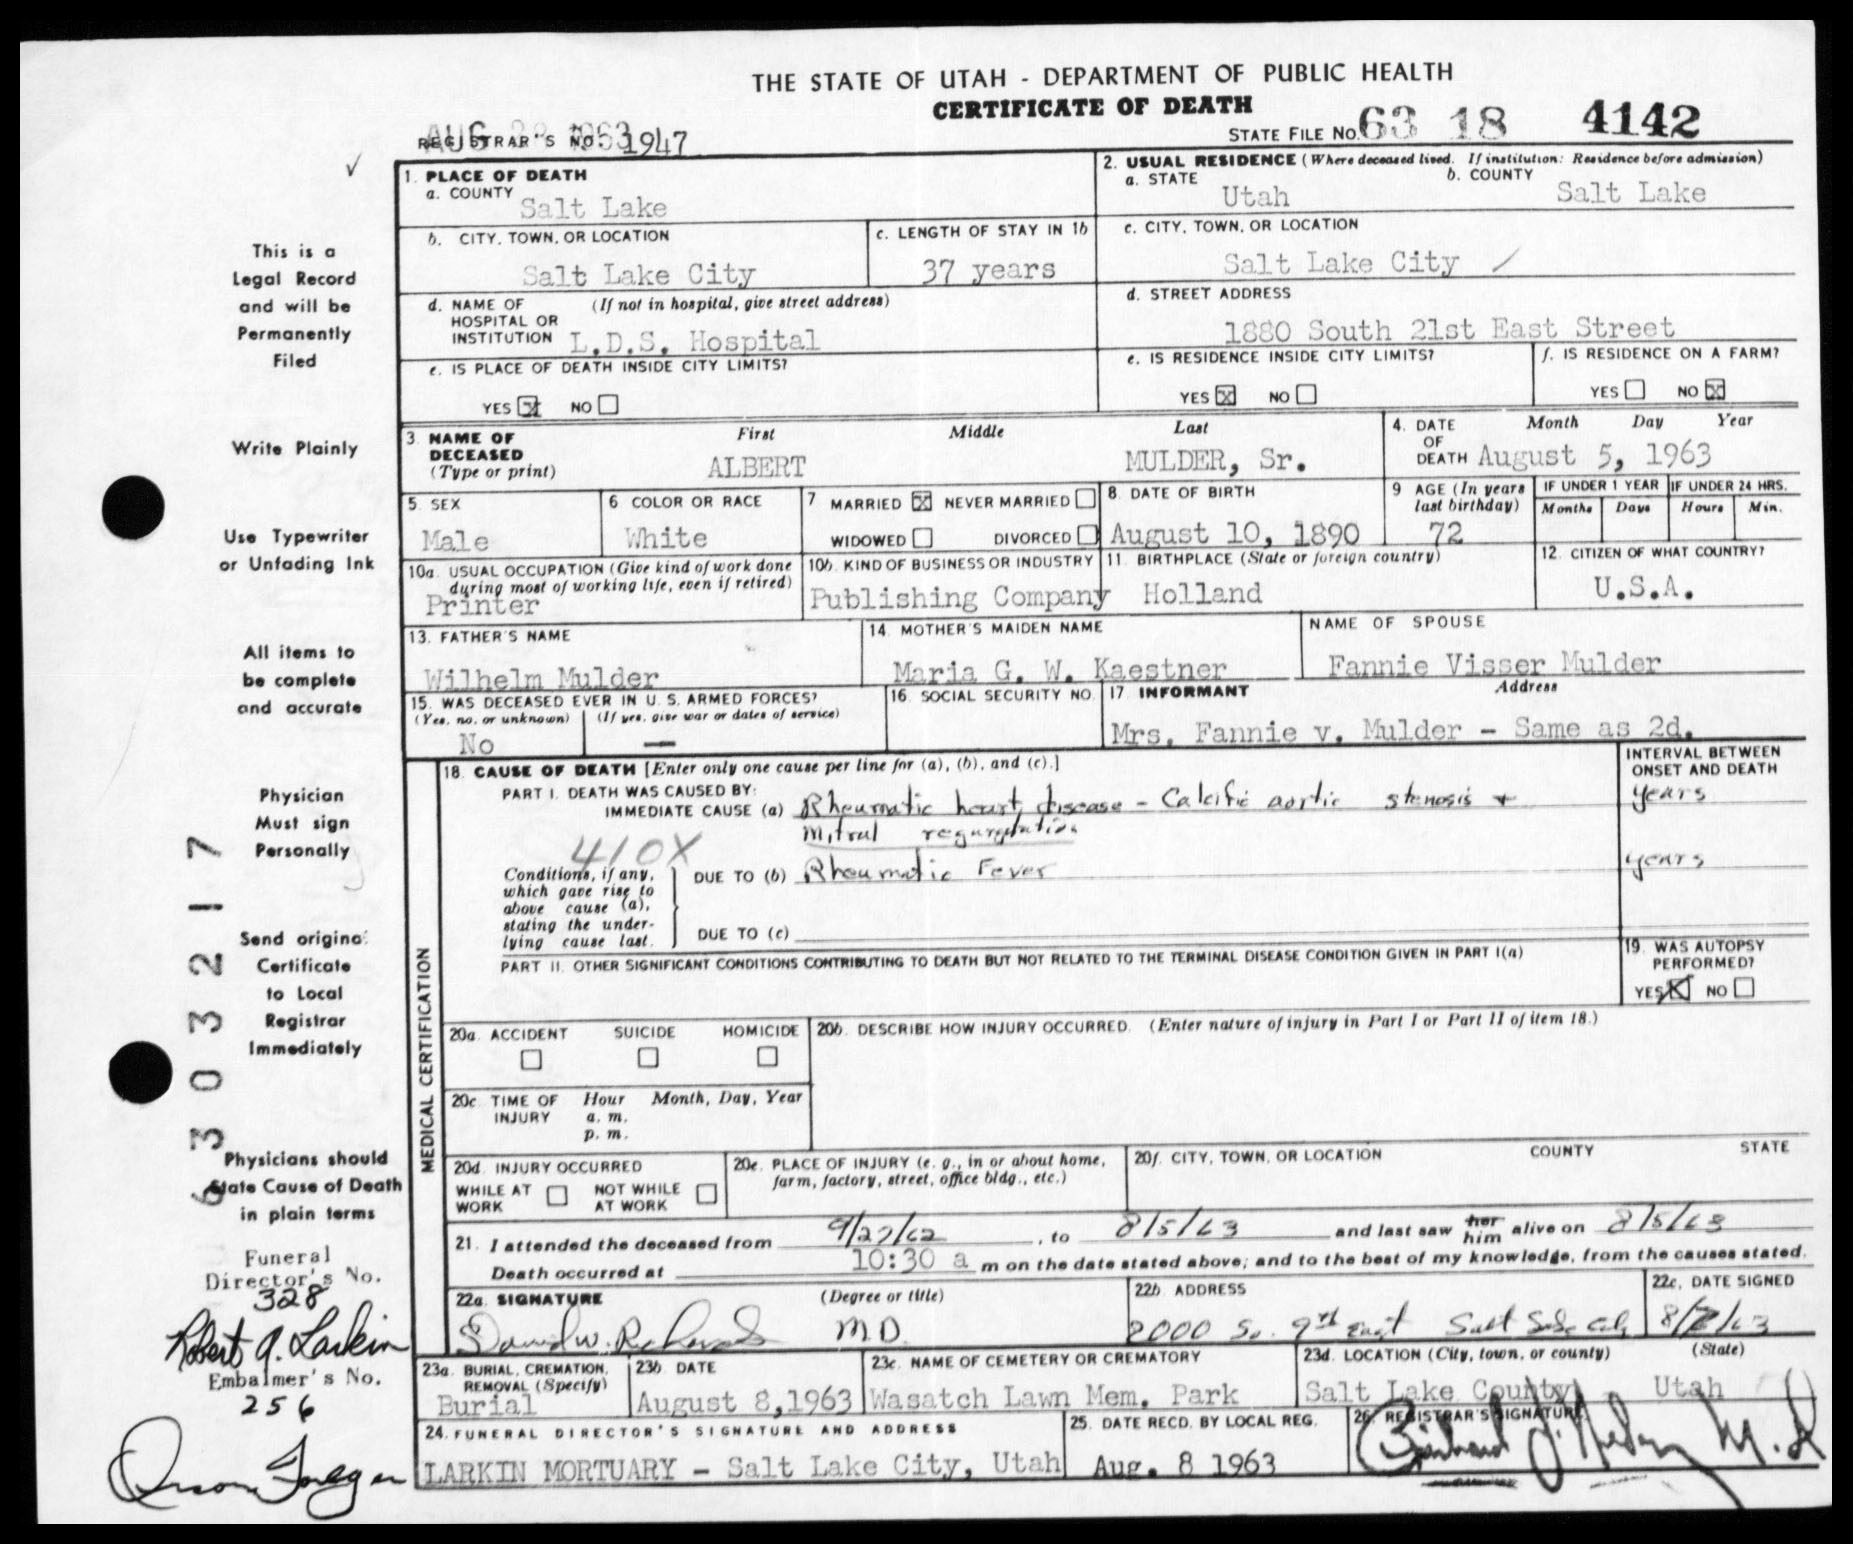 THE STATE OF UTAH - DEPARTMENT OF PUBLIC HEALTH
CERTIFICATE OF DEATH
AUG 1963
REGISTRAR'S NO. 1947
STATE FILE NO. 63 18 4142
1. PLACE OF DEATH
a. COUNTY
Salt Lake
2. USUAL RESIDENCE (Where deceased lived. If institution: Residence before admission)
a. STATE
Utah
b. COUNTY
Salt Lake
b. CITY, TOWN, OR LOCATION
Salt Lake City
c. LENGTH OF STAY IN 1b
37 years
c. CITY, TOWN, OR LOCATION
Salt Lake City
d. NAME OF (If not in hospital, give street address)
HOSPITAL OR
INSTITUTION L.D.S. Hospital
d. STREET ADDRESS
1880 South 21st East Street
e. IS PLACE OF DEATH INSIDE CITY LIMITS?
YES X NO
e. IS RESIDENCE INSIDE CITY LIMITS?
YES X NO
f. IS RESIDENCE ON A FARM?
YES NO X
3. NAME OF DECEASED (Type or print)
First Middle Last
ALBERT MULDER, Sr.
4. DATE OF DEATH
Month Day Year
August 5, 1963
5. SEX
Male
6 COLOR OR RACE
White
7 MARRIED X NEVER MARRIED
WIDOWED DIVORCED
8. DATE OF BIRTH
August 10, 1890
9 AGE (In years last birthday)
72
IF UNDER 1 YEAR
Months Days
IF UNDER 24 HRS.
Hours Min.
10a. USUAL OCCUPATION (Give kind of work done
during most of working life, even if retired)
Printer
10b. KIND OF BUSINESS OR INDUSTRY
Publishing Company
11. BIRTHPLACE (State or foreign country)
Holland
12. CITIZEN OF WHAT COUNTRY?
U.S.A.
13. FATHER'S NAME
Wilhelm Mulder
14. MOTHER'S MAIDEN NAME
Maria G. W. Kaestner
NAME OF SPOUSE
Fannie Visser Mulder
15. WAS DECEASED EVER IN U. S. ARMED FORCES?
(Yes, no, or unknown) (If yes, give war or dates of service)
No —
16. SOCIAL SECURITY NO.
17. INFORMANT Address
Mrs. Fannie v. Mulder - Same as 2d.
MEDICAL CERTIFICATION
18. CAUSE OF DEATH [Enter only one cause per line for (a), (b), and (c).]
INTERVAL BETWEEN
ONSET AND DEATH
PART I. DEATH WAS CAUSED BY:
IMMEDIATE CAUSE (a) Rheumatic heart disease - Calcific aortic stenosis +
years
Mitral regurgitation
410X
Conditions, if any,
which gave rise to
above cause (a),
stating the under-
lying cause last.
DUE TO (b) Rheumatic Fever
years
DUE TO (c)
PART II. OTHER SIGNIFICANT CONDITIONS CONTRIBUTING TO DEATH BUT NOT RELATED TO THE TERMINAL DISEASE CONDITION GIVEN IN PART I(a)
19. WAS AUTOPSY
PERFORMED?
YES X NO
20a. ACCIDENT SUICIDE HOMICIDE
20b. DESCRIBE HOW INJURY OCCURRED. (Enter nature of injury in Part I or Part II of item 18.)
20c. TIME OF INJURY
Hour Month, Day, Year
a. m.
p. m.
20d. INJURY OCCURRED
WHILE AT WORK NOT WHILE AT WORK
20e. PLACE OF INJURY (e. g., in or about home,
farm, factory, street, office bldg., etc.)
20f. CITY, TOWN, OR LOCATION COUNTY STATE
21. I attended the deceased from 9/27/62, to 8/5/63 and last saw her him alive on 8/5/63
Death occurred at 10:30 a m on the date stated above; and to the best of my knowledge, from the causes stated.
22a. SIGNATURE (Degree or title)
David W. Richards M.D.
22b. ADDRESS
2000 So. 9th East Salt Lake City
22c. DATE SIGNED
8/7/63
23a. BURIAL, CREMATION,
REMOVAL (Specify)
Burial
23b. DATE
August 8, 1963
23c. NAME OF CEMETERY OR CREMATORY
Wasatch Lawn Mem. Park
23d. LOCATION (City, town, or county) (State)
Salt Lake County Utah
24. FUNERAL DIRECTOR'S SIGNATURE AND ADDRESS
LARKIN MORTUARY - Salt Lake City, Utah
25. DATE RECD. BY LOCAL REG.
Aug. 8 1963
26. REGISTRAR'S SIGNATURE
M.D
This is a
Legal Record
and will be
Permanently
Filed
Write Plainly
Use Typewriter
or Unfading Ink
All items to
be complete
and accurate
Physician
Must sign
Personally
Send original
Certificate
to Local
Registrar
Immediately
Physicians should
State Cause of Death
in plain terms
6303217
Funeral
Director's No.
328
Robert A. Larkin
Embalmer's No.
256